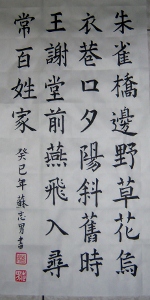 朱雀橋邊野草花烏
衣巷口夕陽斜舊時
王謝堂前燕飛入尋
常百姓家
癸巳年蘇志
書